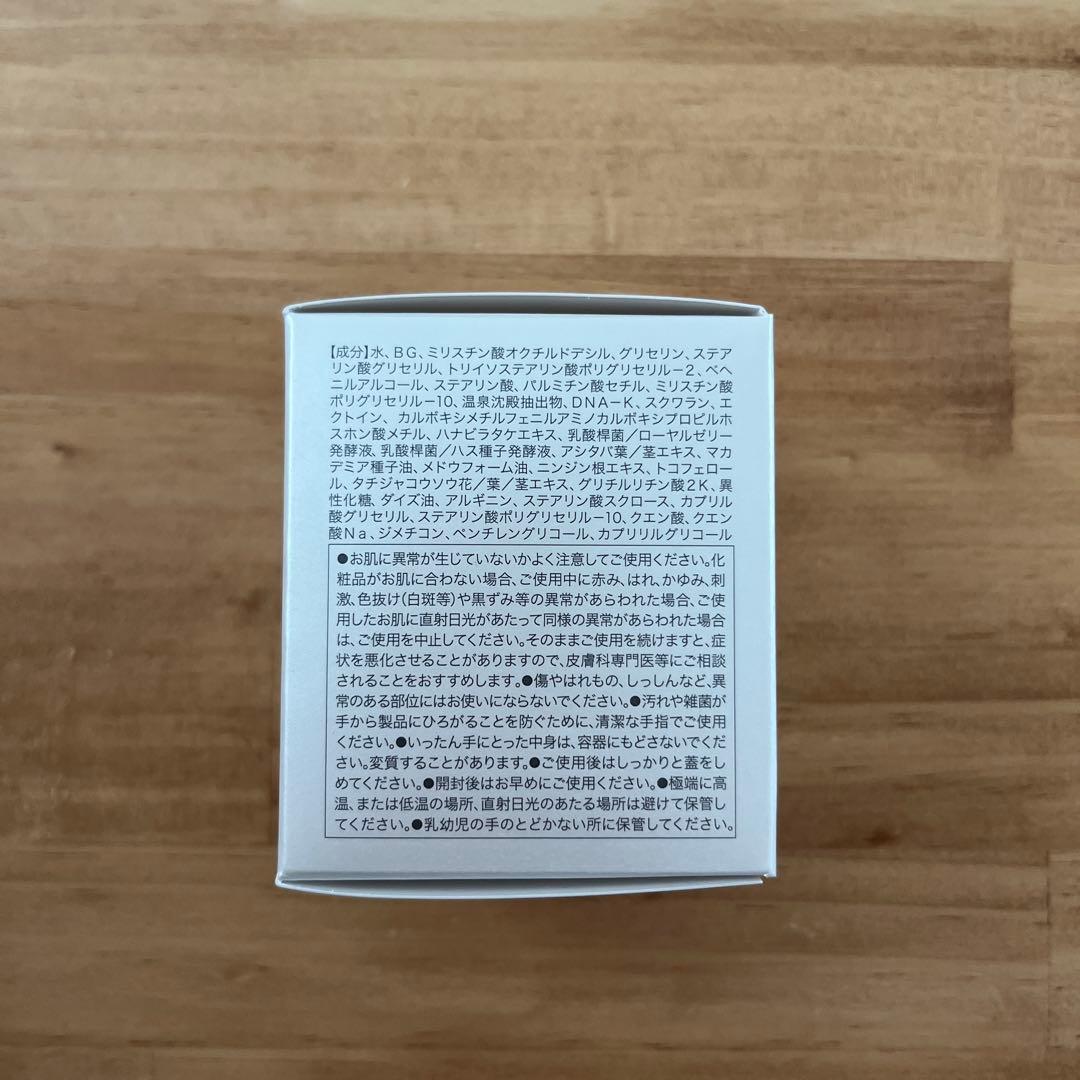 【成分】水、BG、ミリスチン酸オクチルドデシル、グリセリン、ステア
リン酸グリセリル、トリイソステアリン酸ポリグリセリル－2、ベヘ
ニルアルコール、ステアリン酸、パルミチン酸セチル、ミリスチン酸
ポリグリセリル－10、温泉沈殿抽出物、DNA－K、スクワラン、エ
クトイン、カルボキシメチルフェニルアミノカルボキシプロピルホ
スホン酸メチル、ハナビラタケエキス、乳酸桿菌／ローヤルゼリー
発酵液、乳酸桿菌／ハス種子発酵液、アシタバ葉／茎エキス、マカ
デミア種子油、メドウフォーム油、ニンジン根エキス、トコフェロー
ル、タチジャコウソウ花／葉／茎エキス、グリチルリチン酸2K、異
性化糖、ダイズ油、アルギニン、ステアリン酸スクロース、カプリル
酸グリセリル、ステアリン酸ポリグリセリル－10、クエン酸、クエン
酸Na、ジメチコン、ペンチレングリコール、カプリリルグリコール
●お肌に異常が生じていないかよく注意してご使用ください。化
粧品がお肌に合わない場合、ご使用中に赤み、はれ、かゆみ、刺
激、色抜け(白斑等)や黒ずみ等の異常があらわれた場合、ご使
用したお肌に直射日光があたって同様の異常があらわれた場合
は、ご使用を中止してください。そのままご使用を続けますと、症
状を悪化させることがありますので、皮膚科専門医等にご相談
されることをおすすめします。●傷やはれもの、しっしんなど、異
常のある部位にはお使いにならないでください。●汚れや雑菌が
手から製品にひろがることを防ぐために、清潔な手指でご使用
ください。●いったん手にとった中身は、容器にもどさないでくだ
さい。変質することがあります。●ご使用後はしっかりと蓋をし
めてください。●開封後はお早めにご使用ください。●極端に高
温、または低温の場所、直射日光のあたる場所は避けて保管し
てください。●乳幼児の手のとどかない所に保管してください。